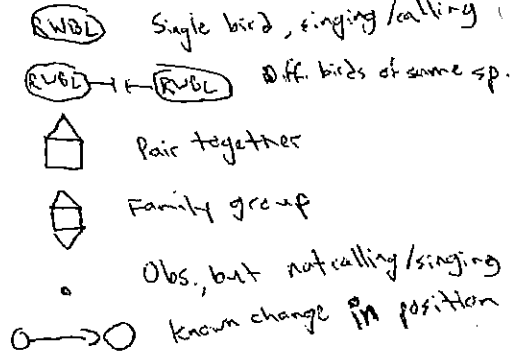 RWBL Single bird, singing/calling
RWBL RWBL Diff. birds of same sp.
Pair together
Family group
Obs., but not calling/singing
known change in position